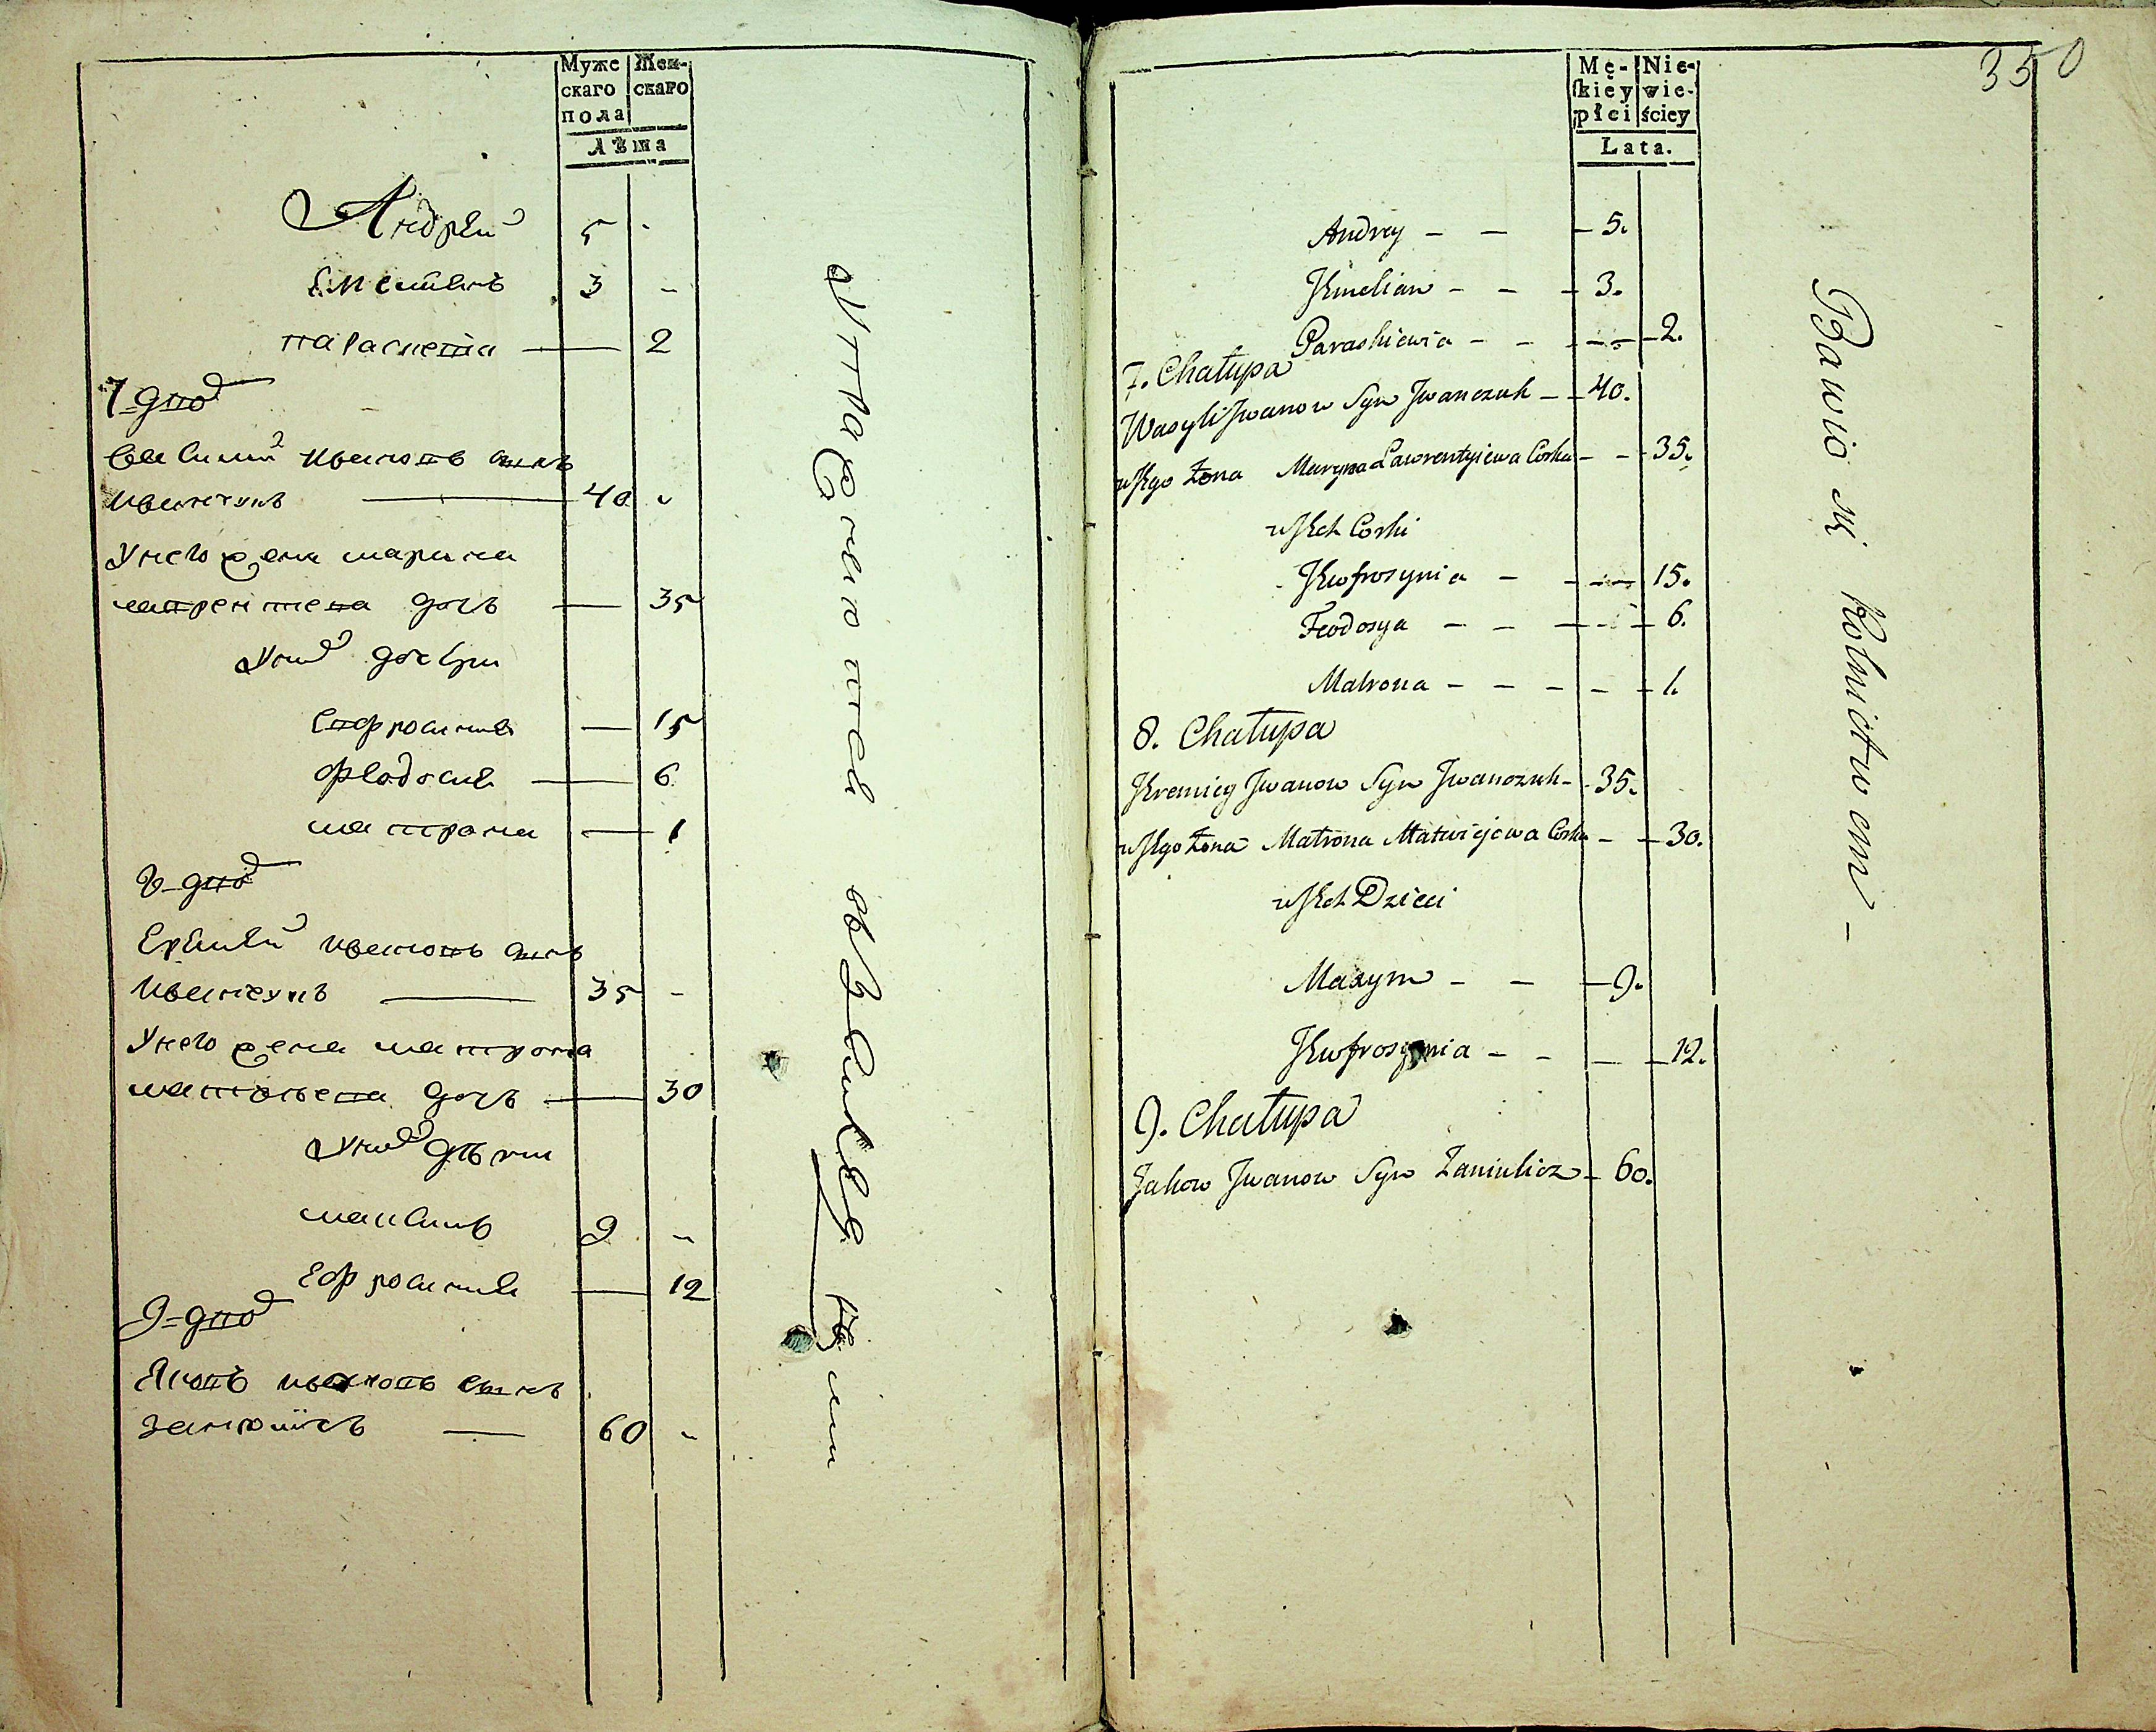 Муже
скаго
пола
Жен-
скаго
Лѣта
Андрей 5 -
Емелианъ 3 -
параскевиа — 2
7=дво
Василий ивановъ сынъ
иванчукъ — 40 -
У него жена марина
лаврентева дочъ — 35
У них дочери
Евфросиния — 15
Феодосия — 6
матрона — 1
8=дво
Еремей ивановъ сынъ
иванчукъ — 35 -
У него жена матрона
матвиева дочъ — 30
У них дѣти
максимъ 9 -
Ефросиния — 12
9=дво
Яковъ ивановъ сынъ
занюличъ — 60 -
350
Mę-
ſkiey
płci
Nie-
wie-
ściey
Lata.
Andrey - - - 5.
Jemelian - - - 3.
Paraskiewia - - - 2.
7. Chałupa
Wasyli Jwanow Syn Jwanczuk - - 40.
u Jego Żona Maryna Lawrentyiewa Corka - - 35.
u Jch Corki
Jewfrosynia - - - 15.
Feodosya - - - 6.
Matrona - - - - - 1.
8. Chałupa
Jeremiey Jwanow Syn Jwanczuk - - 35.
u Jego Żona Matrona Matwiejewa Corka - - 30.
u Jch Dzieci
Maxym - - - 9.
Jewfrosynia - - - - 12.
9. Chałupa
Jakow Jwanow Syn Zaniulicz - 60.
Bawio się Rolnictwem -